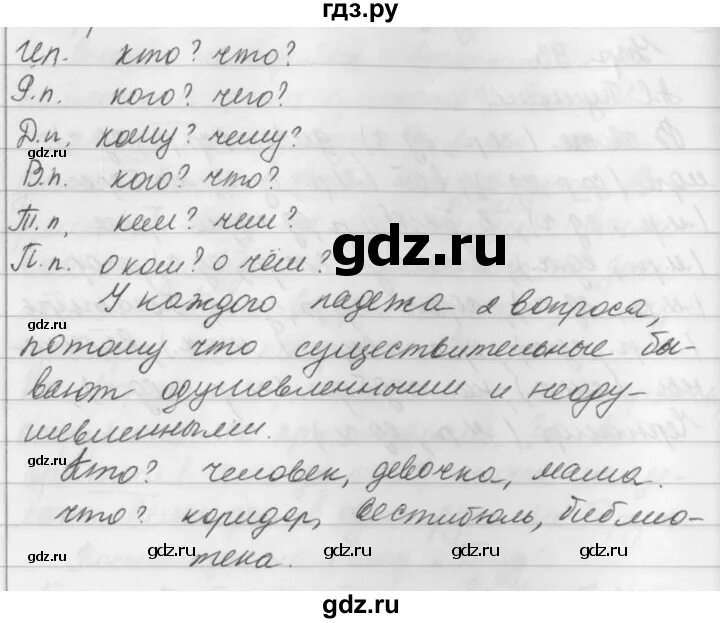 гдз.ру
И.п. кто? что?
Р.п. кого? чего?
Д.п. кому? чему?
gdz.ru
В.п. кого? что?
gdz.ru
Т.п. кем? чем?
П.п. о ком? о чём?
gdz.ru
У каждого падежа 2 вопроса,
gdz.ru
потому что существительные бы-
вают одушевленными и неоду-
gdz.ru
шевленными.
gdz.ru
Кто? человек, девочка, мама.
что? коридор, вестибюль, библио-
gdz.ru gdz.ru gdz.ru gdz.ru
тека.
gdz.ru